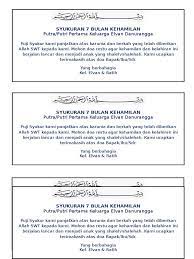 بسم الله الرحمن الرحيم
SYUKURAN 7 BULAN KEHAMILAN
Putra/Putri Pertama Keluarga Elvan Danurangga
Puji Syukur kami panjatkan atas karunia dan berkah yang telah diberikan
Allah SWT kepada kami. Mohon doa restu agar kehamilan dan kelahiran ini
berjalan lancar dan menjadi anak yang shaleh/shalehah. Kami ucapkan
terimakasih atas doa dari Bapak/Ibu/Sdr
Yang berbahagia
Kel. Elvan & Ratih
بسم الله الرحمن الرحيم
SYUKURAN 7 BULAN KEHAMILAN
Putra/Putri Pertama Keluarga Elvan Danurangga
Puji Syukur kami panjatkan atas karunia dan berkah yang telah diberikan
Allah SWT kepada kami. Mohon doa restu agar kehamilan dan kelahiran ini
berjalan lancar dan menjadi anak yang shaleh/shalehah. Kami ucapkan
terimakasih atas doa dari Bapak/Ibu/Sdr
Yang berbahagia
Kel. Elvan & Ratih
بسم الله الرحمن الرحيم
SYUKURAN 7 BULAN KEHAMILAN
Putra/Putri Pertama Keluarga Elvan Danurangga
Puji Syukur kami panjatkan atas karunia dan berkah yang telah diberikan
Allah SWT kepada kami. Mohon doa restu agar kehamilan dan kelahiran ini
berjalan lancar dan menjadi anak yang shaleh/shalehah. Kami ucapkan
terimakasih atas doa dari Bapak/Ibu/Sdr
Yang berbahagia
Kel. Elvan & Ratih